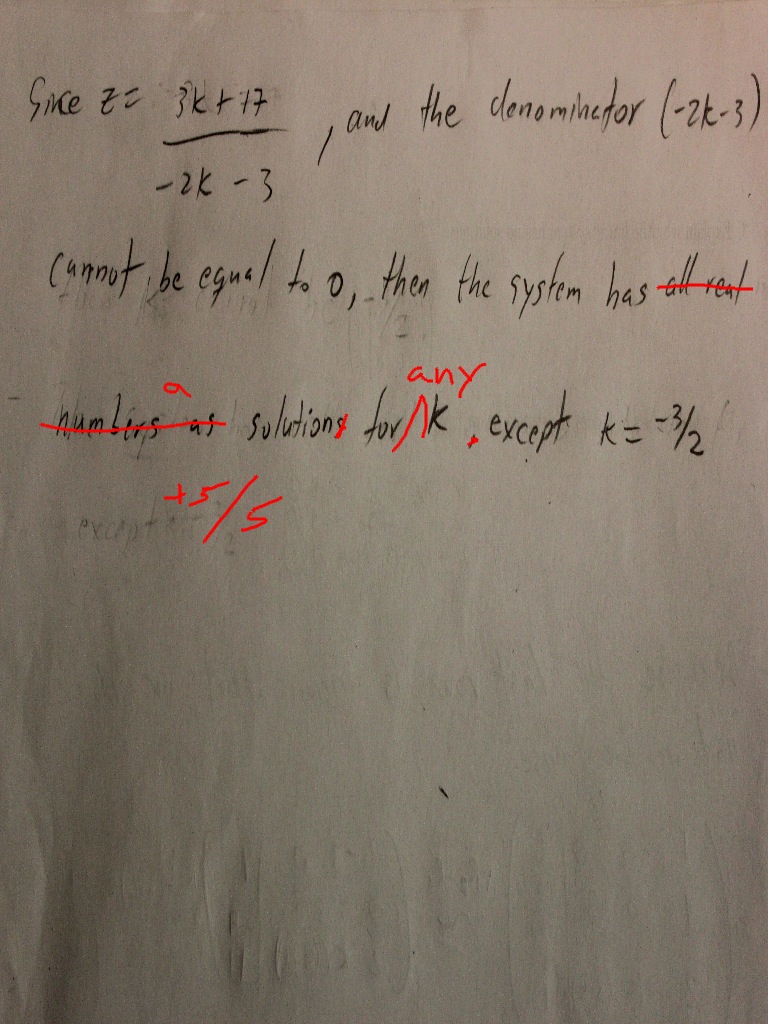 Since z = 3k + 17 / -2k - 3, and the denominator (-2k-3)
cannot be equal to 0, then the system has all real
a any
numbers as solutions for k . except k = -3/2
+5/5
except